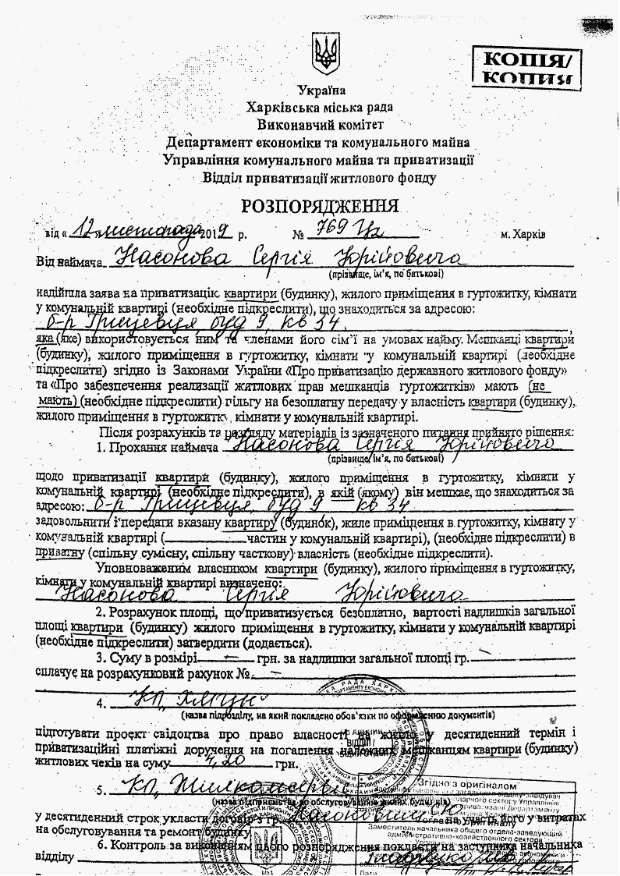 КОПІЯ/
КОПИЯ
Україна
Харківська міська рада
Виконавчий комітет
Департамент економіки та комунального майна
Управління комунального майна та приватизації
Відділ приватизації житлового фонду
РОЗПОРЯДЖЕННЯ
від « 12 » листопада 2019 р. № 769 м. Харків
Від наймача Насонова Сергія Юрійовича
(прізвище, ім'я, по батькові)
надійшла заява на приватизацію квартири (будинку), жилого приміщення в гуртожитку, кімнати
у комунальній квартирі (необхідне підкреслити), що знаходиться за адресою:
б-р Грицевця, буд 9, кв 34,
яка (яке) використовується ним та членами його сім'ї на умовах найму. Мешканці квартири
(будинку), жилого приміщення в гуртожитку, кімнати у комунальній квартирі (необхідне
підкреслити) згідно із Законами України «Про приватизацію державного житлового фонду»
та «Про забезпечення реалізації житлових прав мешканців гуртожитків» мають (не
мають) (необхідне підкреслити) пільгу на безоплатну передачу у власність квартири (будинку),
жилого приміщення в гуртожитку, кімнати у комунальній квартирі.
Після розрахунків та розгляду матеріалів із зазначеного питання прийнято рішення:
1. Прохання наймача Насонова Сергія Юрійовича
(прізвище, ім'я, по батькові)
щодо приватизації квартири (будинку), жилого приміщення в гуртожитку, кімнати у
комунальній квартирі (необхідне підкреслити), в якій (якому) він мешкає, що знаходиться за
адресою: б-р Грицевця, буд 9 кв 34
задовольнити і передати вказану квартиру (будинок), жиле приміщення в гуртожитку, кімнату у
комунальній квартирі (____ частин у комунальній квартирі), (необхідне підкреслити) в
приватну (спільну сумісну, спільну часткову) власність (необхідне підкреслити).
Уповноваженим власником квартири (будинку), жилого приміщення в гуртожитку,
кімнати у комунальній квартирі визначено:
Насонова Сергія Юрійовича
2. Розрахунок площі, що приватизується безоплатно, вартості надлишків загальної
площі квартири (будинку) жилого приміщення в гуртожитку, кімнати у комунальній квартирі
(необхідне підкреслити) затвердити (додається).
3. Суму в розмірі — грн. за надлишки загальної площі гр. —
сплачує на розрахунковий рахунок № —
4. КП
(назва підрозділу, на який покладено обов'язки по оформленню документів)
підготувати проєкт свідоцтва про право власності на житло у десятиденний термін і
приватизаційні платіжні доручення на погашення належних мешканцям квартири (будинку)
житлових чеків на суму 4,20 грн.
5. КП Жилкомсервіс
(назва підприємства по обслуговуванню жилих будинків)
у десятиденний строк укласти договір з гр. на участь його у витратах
на обслуговування та ремонт будинку
6. Контроль за виконанням цього розпорядження покласти на заступника начальника
відділу
Згідно з оригіналом